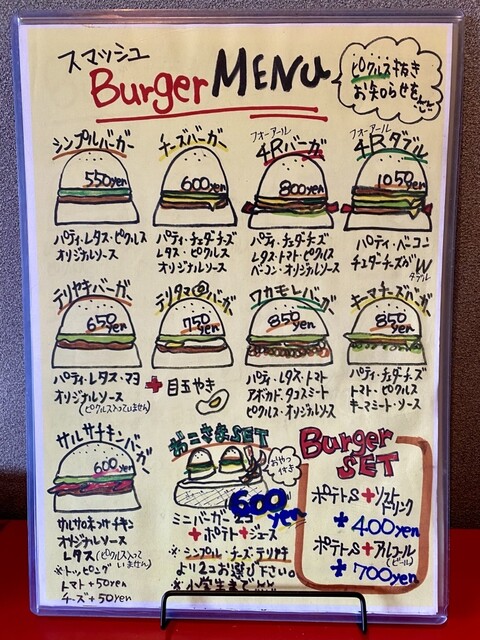 スマッシュ
Burger MENU
ピクルス抜き
お知らせを
シンプルバーガー
550yen
パティ・レタス・ピクルス
オリジナルソース
チーズバーガー
600yen
パティ・チェダーチーズ
レタス・ピクルス
オリジナルソース
フォーアール
4Rバーガー
800yen
パティ・チェダーチーズ
レタス・トマト・ピクルス
ベーコン・オリジナルソース
フォーアール
4Rダブル
1050yen
パティ・ベーコン
チェダーチーズがW
ダブル
テリヤキバーガー
650yen
パティ・レタス・マヨ
オリジナルソース
(ピクルス入っていません)
テリタマ バーガー
750yen
+ 目玉やき
ワカモレバーガー
850yen
パティ・レタス・トマト
アボカド・タコスミート
ピクルス・オリジナルソース
キーマチーズバーガー
850yen
パティ・チェダーチーズ
トマト・ピクルス
キーマミート・ソース
サルサチキンバーガー
600yen
サルサ チキン
オリジナルソース
レタス(ピクルス入っていません)
※トッピング
トマト+50yen
チーズ+50yen
お子さまSET
おやつ付き
600yen
ミニバーガー2コ
+ポテト+ジュース
※シンプル・チーズ・テリヤキ
より2コお選び下さい。
※小学生まで
Burger
SET
ポテトS+ソフトドリンク
+400yen
ポテトS+アルコール
(ビール)
+700yen